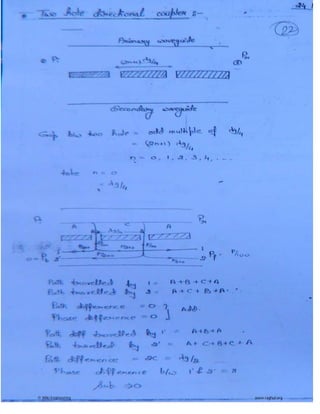 24
* Two hole directional coupler :-
22
Primary waveguide
(2n+1) λg/4
Secondary waveguide
Gap b/w two hole = odd multiple of λg/4
= (2n+1) λg/4
n = 0, 1, 2, 3, 4, ...
take n = 0
= λg/4
A C A
λg/4
1
2
Path travelled by 1 = A+B+C+A
Path travelled by 2 = A+C+B+A
Path difference = 0 } Add.
Phase difference = 0
Path diff travelled by 1' = A+B+A
Path travelled by 2' = A+C+B+C+A
Path difference = 2C = λg/2
Phase difference b/w 1' & 2' = π
Sub → 0